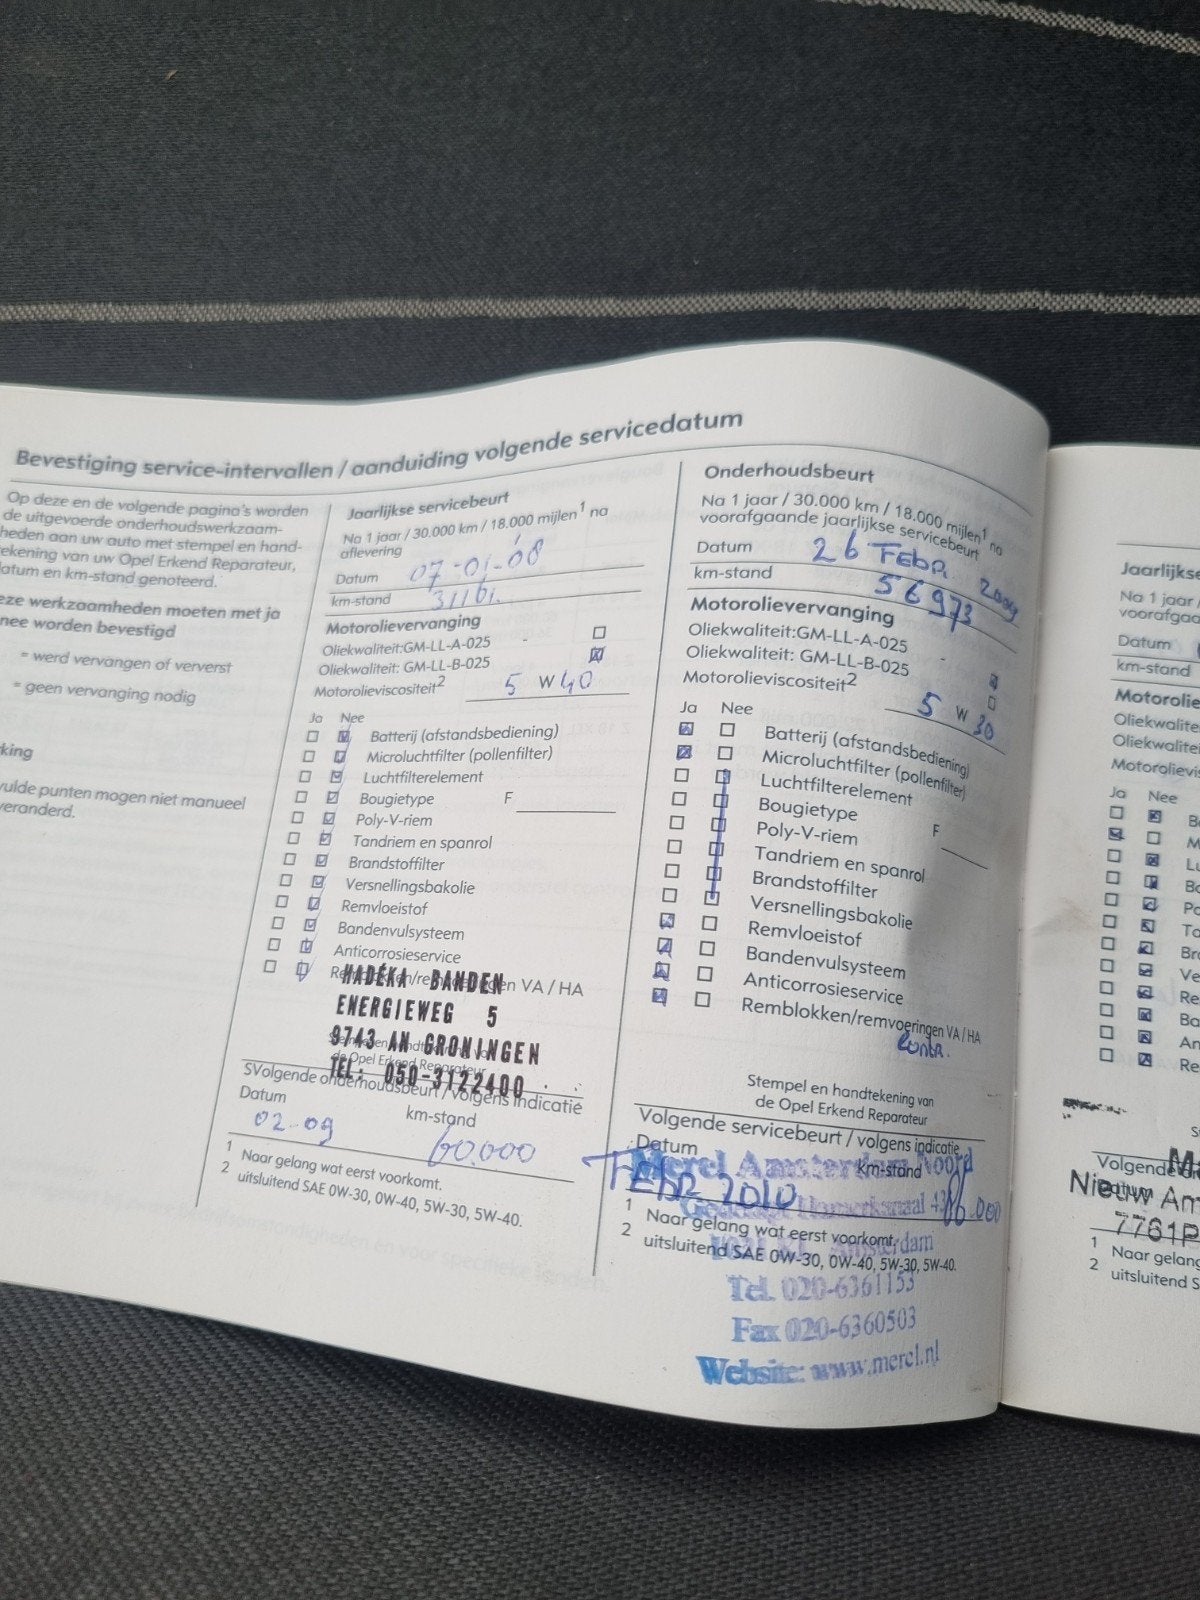 Bevestiging service-intervallen / aanduiding volgende servicedatum
Op deze en de volgende pagina's worden
de uitgevoerde onderhoudswerkzaam-
heden aan uw auto met stempel en hand-
ekening van uw Opel Erkend Reparateur,
atum en km-stand genoteerd.
eze werkzaamheden moeten met ja
nee worden bevestigd
= werd vervangen of ververst
= geen vervanging nodig
king
vulde punten mogen niet manueel
veranderd.
Jaarlijkse servicebeurt
Na 1 jaar / 30.000 km / 18.000 mijlen1 na
aflevering
Datum 07-01-'08
km-stand
Motorolievervanging
Oliekwaliteit:GM-LL-A-025
Oliekwaliteit: GM-LL-B-025
Motorolieviscositeit2 5 W 40
Ja Nee
Batterij (afstandsbediening)
Microluchtfilter (pollenfilter)
Luchtfilterelement
Bougietype F
Poly-V-riem
Tandriem en spanrol
Brandstoffilter
Versnellingsbakolie
Remvloeistof
Bandenvulsysteem
Anticorrosieservice
Remblokken/remvoeringen VA / HA
HADÉKA BANDEN
ENERGIEWEG 5
9743 AN GRONINGEN
TEL: 050-3122400
de Opel Erkend Reparateur
SVolgende onderhoudsbeurt / volgens indicatie
Datum km-stand
02-09 60.000
1 Naar gelang wat eerst voorkomt.
2 uitsluitend SAE 0W-30, 0W-40, 5W-30, 5W-40.
Onderhoudsbeurt
Na 1 jaar / 30.000 km / 18.000 mijlen1 na
voorafgaande jaarlijkse servicebeurt
Datum 26 Febr. 2009
km-stand 56973
Motorolievervanging
Oliekwaliteit:GM-LL-A-025
Oliekwaliteit: GM-LL-B-025
Motorolieviscositeit2 5 W 30
Ja Nee
Batterij (afstandsbediening)
Microluchtfilter (pollenfilter)
Luchtfilterelement
Bougietype F
Poly-V-riem
Tandriem en spanrol
Brandstoffilter
Versnellingsbakolie
Remvloeistof
Bandenvulsysteem
Anticorrosieservice
Remblokken/remvoeringen VA / HA
Contr.
Stempel en handtekening van
de Opel Erkend Reparateur
Volgende servicebeurt / volgens indicatie
Datum km-stand
Febr 2010 86.000
Merel Amsterdam Noord
Amsterdam
Tel. 020-6361153
Fax 020-6360503
Website: www.merel.nl
1 Naar gelang wat eerst voorkomt.
2 uitsluitend SAE 0W-30, 0W-40, 5W-30, 5W-40.
Jaarlijkse
Na 1 jaar /
voorafgaa
Datum
km-stand
Motorolie
Oliekwalite
Oliekwalite
Motorolievis
Ja Nee
Ba
M
Lu
Bo
Po
Ta
Br
Ve
Re
Ba
An
Re
S
Volgende
Ma
Nieuw Am
7761P
1 Naar gelang
2 uitsluitend S